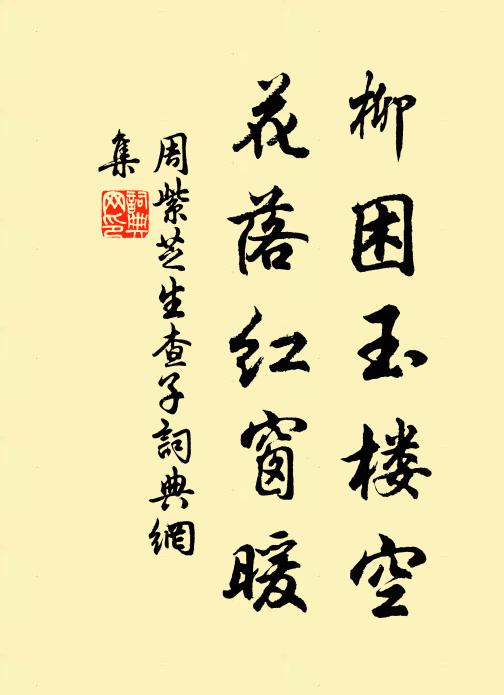 柳困玉楼空
花落红窗暖
周紫芝生查子詞典網
集
詞典网印